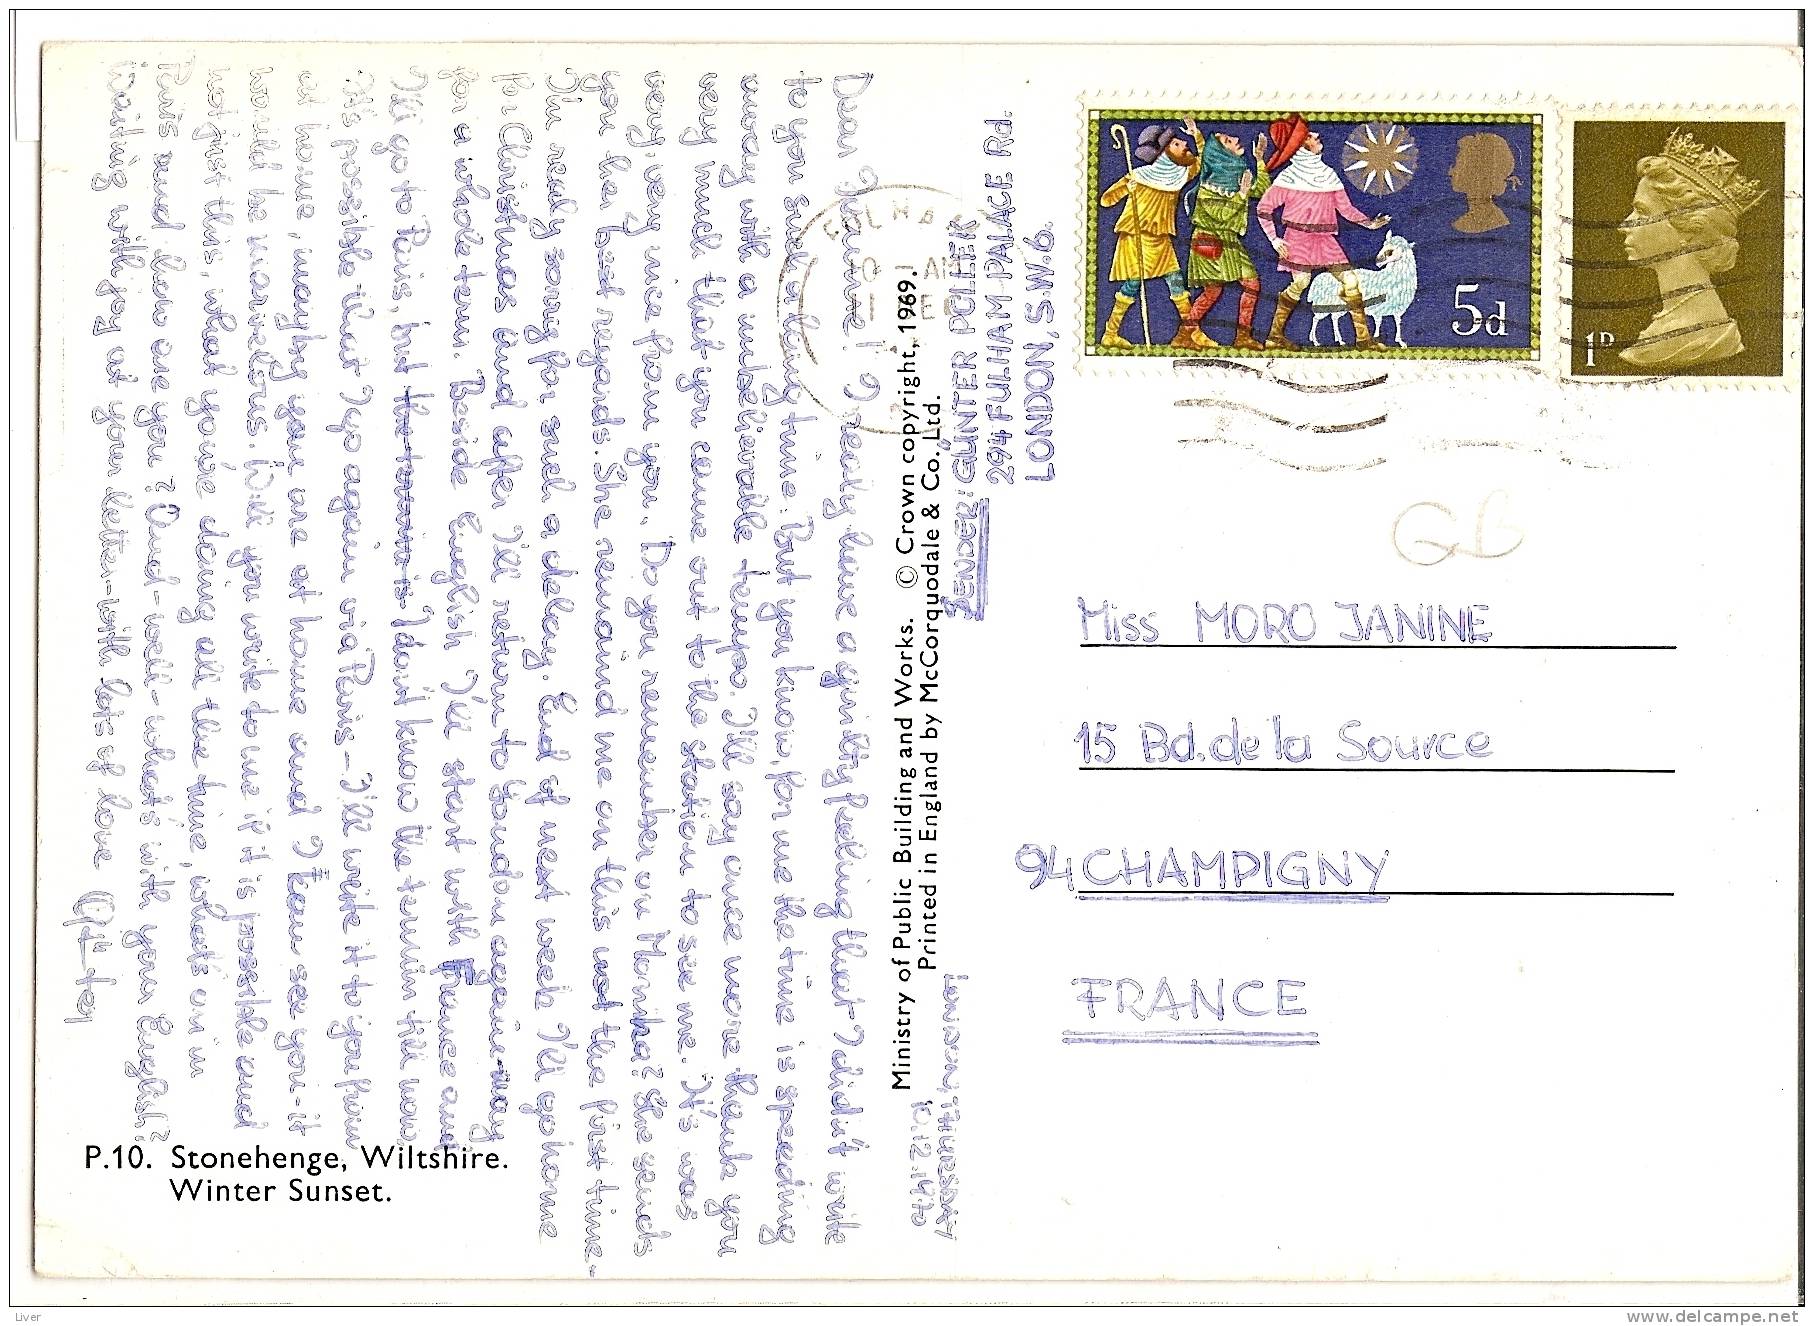 LONDON, THURSDAY
10.12.1970
Dear Jeannine! I really have a guilty feeling that I didn't write
to you such a long time. But you know, for me the time is speeding
away with a unbelievable tempo. I'll say once more thank you
very much that you came out to the station to see me. It's was
very, very nice from you. Do you remember on Monika? She sends
you her best regards. She remaind me on this not the first time.-
I'm realy sorry for such a delay. End of next week I'll go home
for Christmas and after I'll return to London again
for a whole term. Beside English I'll start with France and
I'll go to Paris, but I don't know the termin till now.
It's possible that I go again via Paris - I'll write it to you from
at home, mayby you are at home and I can see you - it
would be marvelous. Will you write to me if it is possible and
not just this, what you're doing all the time, what's on in
Paris and how are you? And - well - what's with your English?
Waiting with joy at your letter - with lots of love
P.10. Stonehenge, Wiltshire.
Winter Sunset.
Ministry of Public Building and Works. © Crown copyright, 1969.
Printed in England by McCorquodale & Co., Ltd.
SENDER: GUNTER POLLER
294 FULHAM PALACE Rd.
LONDON, S.W.6.
5d
1D
GB
Miss MORO JANINE
15 Bd. de la Source
94 CHAMPIGNY
FRANCE
Liver
delcampe.net